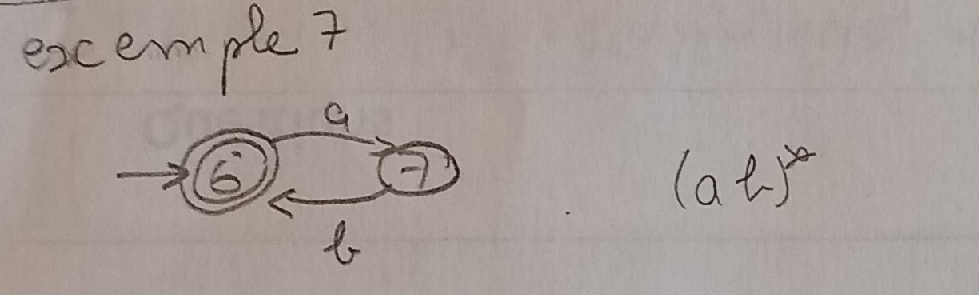 excemple 7
a
6 7 (ab)*
b